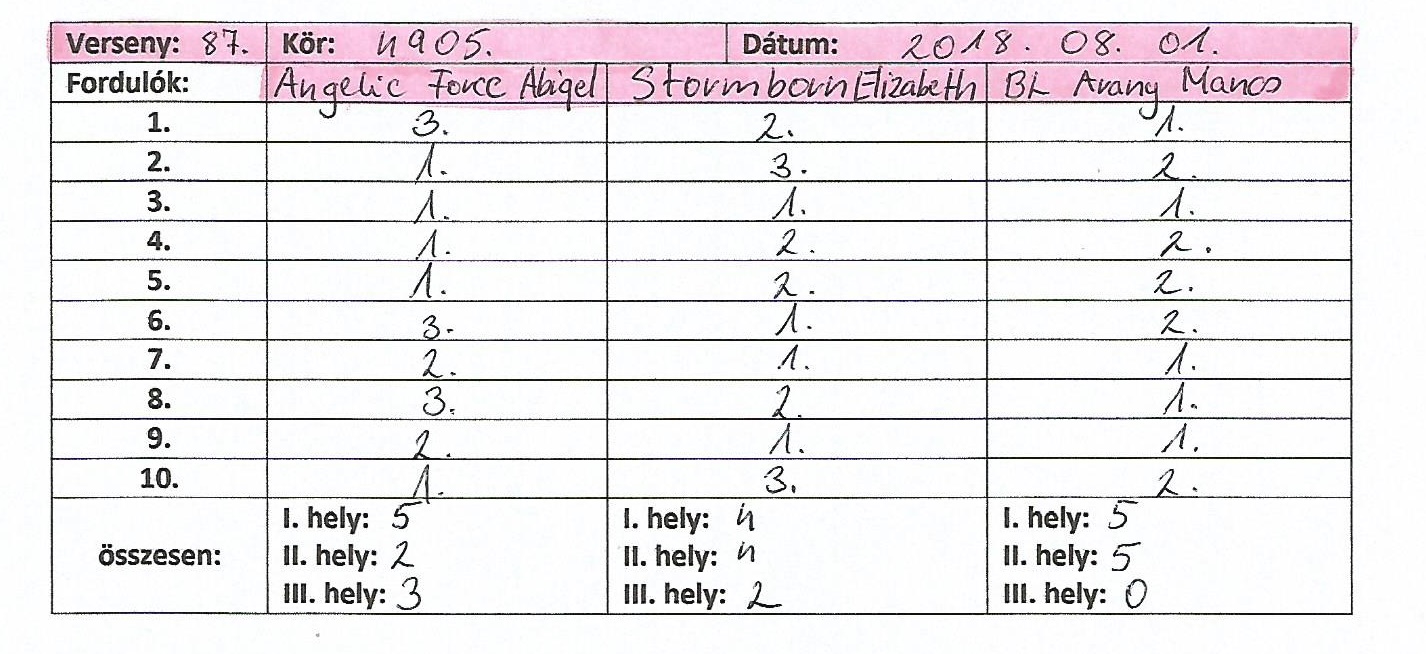 Verseny: 87. Kör: 4905. Dátum: 2018. 08. 01.
Fordulók: Angelic Force Abigel Stormborn Elizabeth BL Arany Mancs
1. 3. 2. 1.
2. 1. 3. 2.
3. 1. 1. 1.
4. 1. 2. 2.
5. 1. 2. 2.
6. 3. 1. 2.
7. 2. 1. 1.
8. 3. 2. 1.
9. 2. 1. 1.
10. 1. 3. 2.
I. hely: 5 I. hely: 4 I. hely: 5
összesen: II. hely: 2 II. hely: 4 II. hely: 5
III. hely: 3 III. hely: 2 III. hely: 0